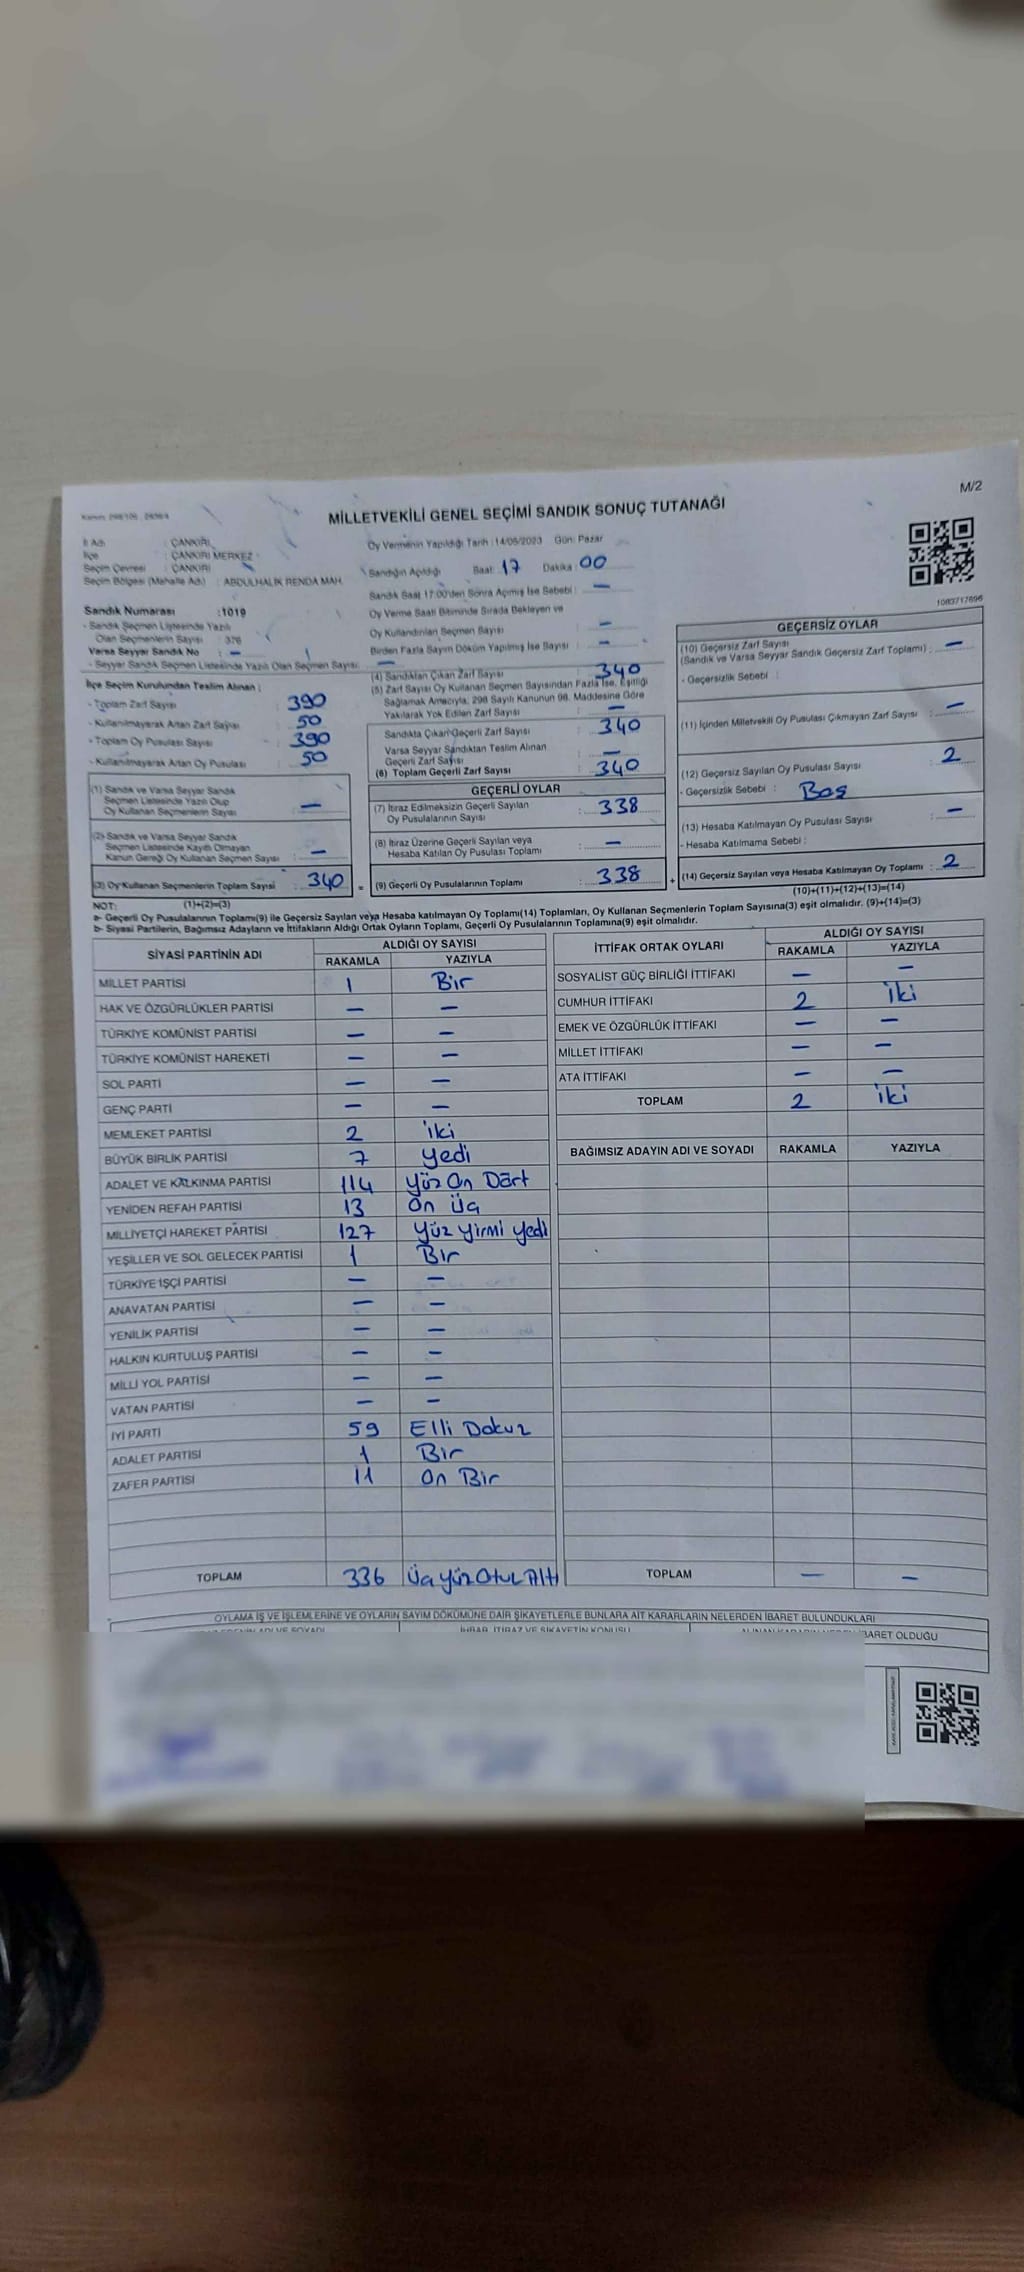 M/2
MİLLETVEKİLİ GENEL SEÇİMİ SANDIK SONUÇ TUTANAĞI
İl Adı : ÇANKIRI
İlçe : ÇANKIRI MERKEZ
Seçim Çevresi : ÇANKIRI
Seçim Bölgesi (Mahalle Adı) : ABDULHALİK RENDA MAH.
Sandık Numarası :1019
- Sandık Seçmen Listesinde Yazılı
Olan Seçmenlerin Sayısı : 376
Varsa Seyyar Sandık No : —
- Seyyar Sandık Seçmen Listesinde Yazılı Olan Seçmen Sayısı : —
İlçe Seçim Kurulundan Teslim Alınan :
- Toplam Zarf Sayısı : 390
- Kullanılmayarak Artan Zarf Sayısı : 50
- Toplam Oy Pusulası Sayısı : 390
- Kullanılmayarak Artan Oy Pusulası : 50
(1) Sandık ve Varsa Seyyar Sandık
Seçmen Listesinde Yazılı Olup
Oy Kullanan Seçmenlerin Sayısı : —
(2) Sandık ve Varsa Seyyar Sandık
Seçmen Listesinde Kayıtlı Olmayan
Kanun Gereği Oy Kullanan Seçmen Sayısı : —
(3) Oy Kullanan Seçmenlerin Toplam Sayısı : 340
(1)+(2)=(3)
Oy Vermenin Yapıldığı Tarih :14/05/2023 Gün: Pazar
Sandığın Açıldığı Saat: 17 Dakika: 00
Sandık Saat 17:00'den Sonra Açmış İse Sebebi : —
Oy Verme Saati Bitiminde Sırada Bekleyen ve
Oy Kullandırılan Seçmen Sayısı : —
Birden Fazla Sayım Döküm Yapılmış İse Sayısı : —
(4) Sandıktan Çıkan Zarf Sayısı : 340
(5) Zarf Sayısı Oy Kullanan Seçmen Sayısından Fazla İse, Eşitliği
Sağlamak Amacıyla, 298 Sayılı Kanunun 98. Maddesine Göre
Yakılarak Yok Edilen Zarf Sayısı : —
Sandıkta Çıkan Geçerli Zarf Sayısı : 340
Varsa Seyyar Sandıktan Teslim Alınan
Geçerli Zarf Sayısı : —
(6) Toplam Geçerli Zarf Sayısı : 340
GEÇERLİ OYLAR
(7) İtiraz Edilmeksizin Geçerli Sayılan
Oy Pusulalarının Sayısı : 338
(8) İtiraz Üzerine Geçerli Sayılan veya
Hesaba Katılan Oy Pusulası Toplamı : —
= (9) Geçerli Oy Pusulalarının Toplamı : 338 +
1083717896
GEÇERSİZ OYLAR
(10) Geçersiz Zarf Sayısı
(Sandık ve Varsa Seyyar Sandık Geçersiz Zarf Toplamı) : —
- Geçersizlik Sebebi :
(11) İçinden Milletvekili Oy Pusulası Çıkmayan Zarf Sayısı : —
(12) Geçersiz Sayılan Oy Pusulası Sayısı : 2
- Geçersizlik Sebebi : Boş
(13) Hesaba Katılmayan Oy Pusulası Sayısı : —
- Hesaba Katılmama Sebebi :
(14) Geçersiz Sayılan veya Hesaba Katılmayan Oy Toplamı : 2
(10)+(11)+(12)+(13)=(14)
NOT:
a- Geçerli Oy Pusulalarının Toplamı(9) ile Geçersiz Sayılan veya Hesaba katılmayan Oy Toplamı(14) Toplamları, Oy Kullanan Seçmenlerin Toplam Sayısına(3) eşit olmalıdır. (9)+(14)=(3)
b- Siyasi Partilerin, Bağımsız Adayların ve İttifakların Aldığı Ortak Oyların Toplamı, Geçerli Oy Pusulalarının Toplamına(9) eşit olmalıdır.
SİYASİ PARTİNİN ADI ALDIĞI OY SAYISI
RAKAMLA YAZIYLA
MİLLET PARTİSİ 1 Bir
HAK VE ÖZGÜRLÜKLER PARTİSİ — —
TÜRKİYE KOMÜNİST PARTİSİ — —
TÜRKİYE KOMÜNİST HAREKETİ — —
SOL PARTİ — —
GENÇ PARTİ — —
MEMLEKET PARTİSİ 2 iki
BÜYÜK BİRLİK PARTİSİ 7 yedi
ADALET VE KALKINMA PARTİSİ 114 Yüz On Dört
YENİDEN REFAH PARTİSİ 13 On Üç
MİLLİYETÇİ HAREKET PARTİSİ 127 Yüz Yirmi Yedi
YEŞİLLER VE SOL GELECEK PARTİSİ 1 Bir
TÜRKİYE İŞÇİ PARTİSİ — —
ANAVATAN PARTİSİ — —
YENİLİK PARTİSİ — —
HALKIN KURTULUŞ PARTİSİ — —
MİLLİ YOL PARTİSİ — —
VATAN PARTİSİ — —
İYİ PARTİ 59 Elli Dokuz
ADALET PARTİSİ 1 Bir
ZAFER PARTİSİ 11 On Bir
TOPLAM 336 Üç Yüz Otuz Altı
İTTİFAK ORTAK OYLARI ALDIĞI OY SAYISI
RAKAMLA YAZIYLA
SOSYALİST GÜÇ BİRLİĞİ İTTİFAKI — —
CUMHUR İTTİFAKI 2 iki
EMEK VE ÖZGÜRLÜK İTTİFAKI — —
MİLLET İTTİFAKI — —
ATA İTTİFAKI — —
TOPLAM 2 iki
BAĞIMSIZ ADAYIN ADI VE SOYADI RAKAMLA YAZIYLA
TOPLAM — —
OYLAMA İŞ VE İŞLEMLERİNE VE OYLARIN SAYIM DÖKÜMÜNE DAİR ŞİKAYETLERLE BUNLARA AİT KARARLARIN NELERDEN İBARET BULUNDUKLARI
İHBAR, İTİRAZ VE ŞİKAYETİN KONUSU
İBARET OLDUĞU